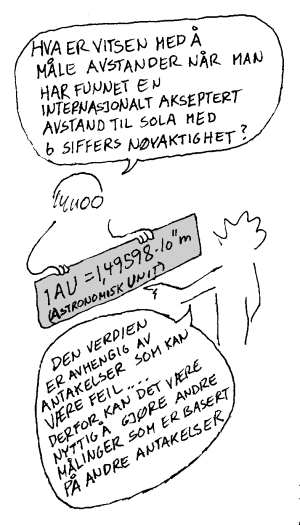 HVA ER VITSEN MED Å
MÅLE AVSTANDER NÅR MAN
HAR FUNNET EN
INTERNASJONALT AKSEPTERT
AVSTAND TIL SOLA MED
6 SIFFERS NØYAKTIGHET?
1 AU = 1,49598·10"m
(ASTRONOMISK UNIT)
DEN VERDIEN
ER AVHENGIG AV
ANTAKELSER SOM KAN
VÆRE FEIL.....
DERFOR KAN DET VÆRE
NYTTIG Å GJØRE ANDRE
MÅLINGER SOM ER BASERT
PÅ ANDRE ANTAKELSER